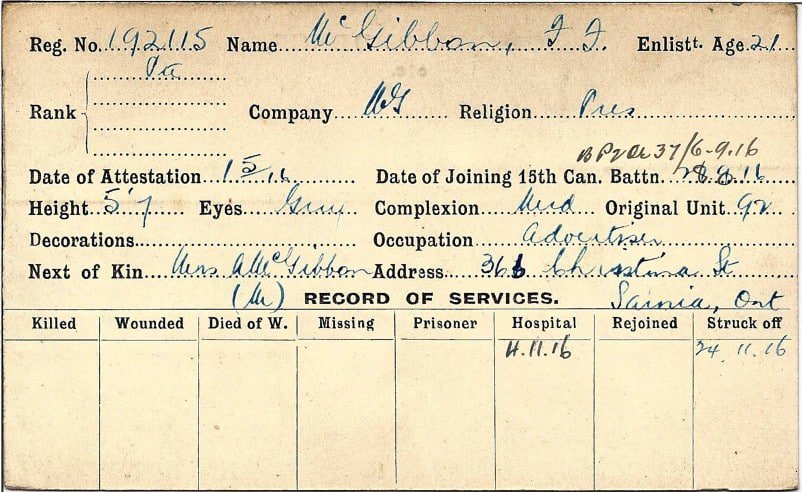 Reg. No. 192115 Name McGibbon, F F. Enlistt. Age 21
Pte
Rank Company Religion Pres
B P2 Or 37/6-9.16
Date of Attestation 1 5 16 Date of Joining 15th Can. Battn. 28 8 16
Height 5' 7 Eyes Grey Complexion Med Original Unit 92
Decorations Occupation Advertiser
Next of Kin Mrs A McGibbon Address 366 Christina St
(M) RECORD OF SERVICES. Sarnia, Ont
Killed Wounded Died of W. Missing Prisoner Hospital Rejoined Struck off
4.11.16 24.11.16